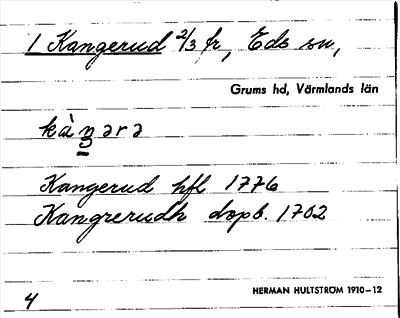 1 Kangerud 2/3 fr, Eds sn,
Grums hd, Värmlands län
kàŋərə
Kangerud hfl 1776
Kangrerudh dopb. 1702
4
HERMAN HULTSTRÖM 1910–12